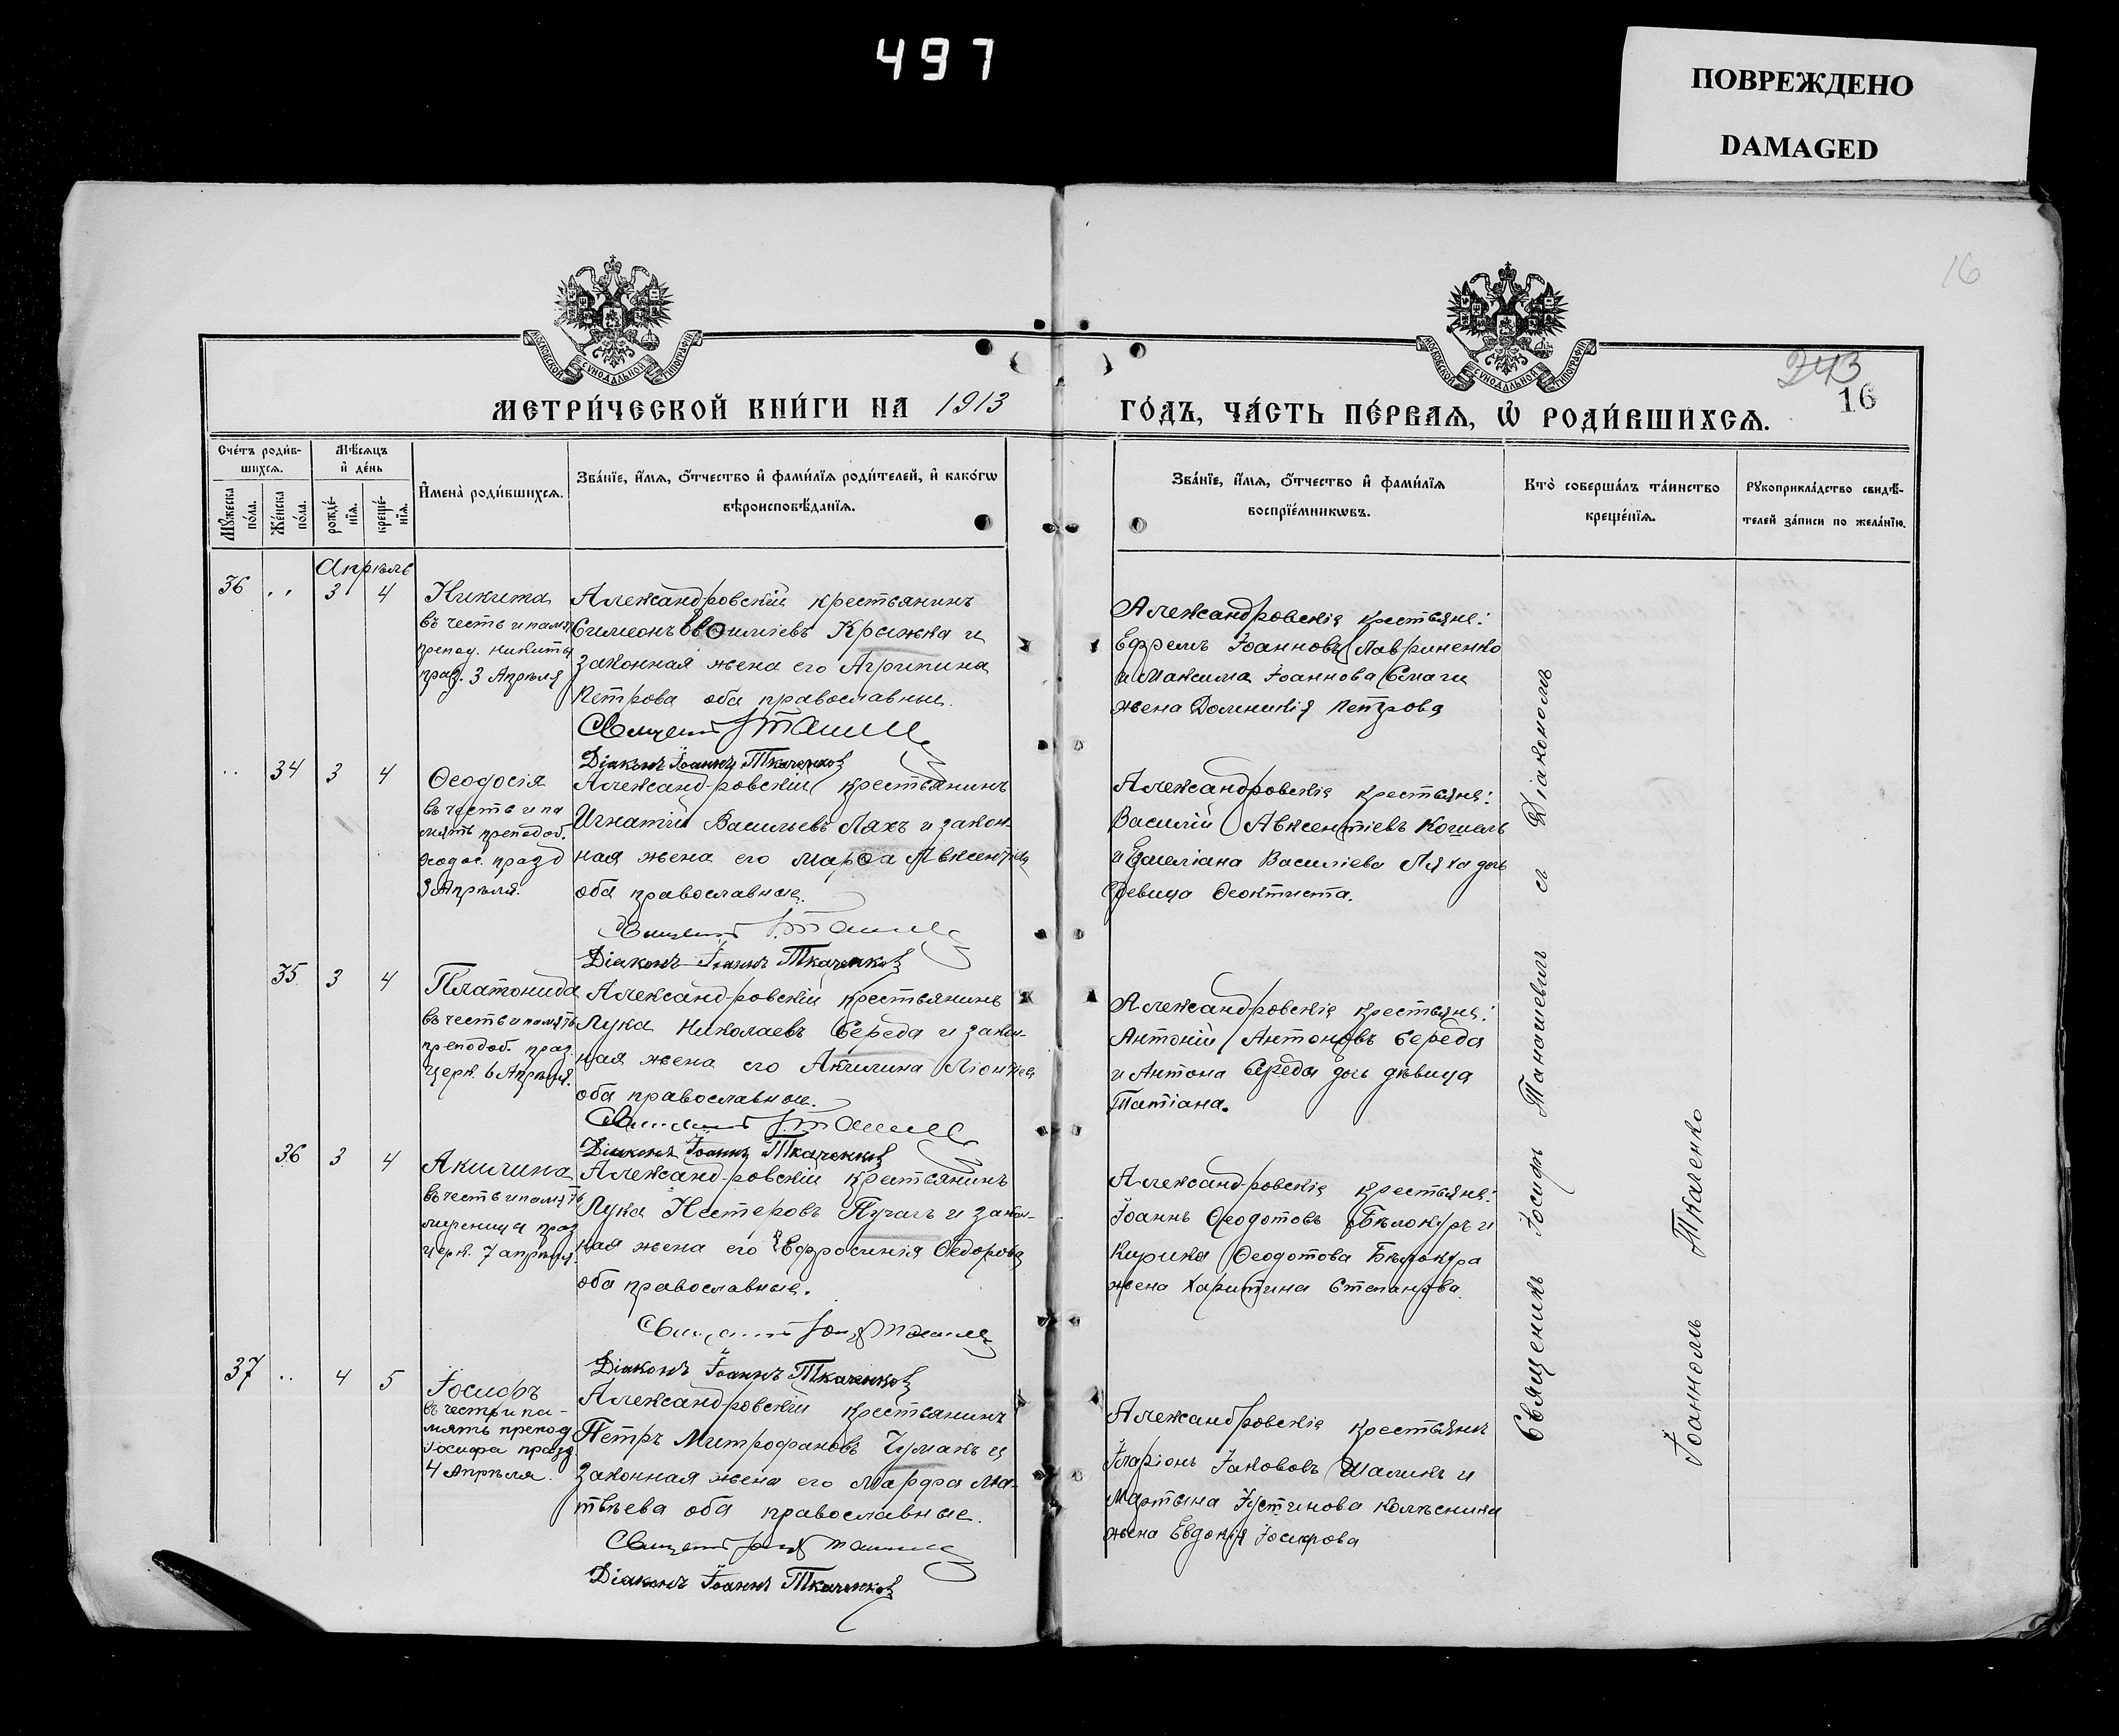 497
ПОВРЕЖДЕНО
DAMAGED
16
МОСКОВСКОЙ СѴНОДАЛЬНОЙ ТИПОГРАФІИ
МОСКОВСКОЙ СѴНОДАЛЬНОЙ ТИПОГРАФІИ
243
16
МЕТРИ́ЧЕСКОЙ КНИ́ГИ НА 1913 ГО́ДЪ, ЧА́СТЬ ПЕ́РВАѦ, Ѡ҆ РОДИ́ВШИХСѦ.
Сче́тъ роди́в-
шихсѧ.
Мꙋ́жеска по́ла.
Же́нска по́ла.
Мѣ́сѧцъ и҆ де́нь
рожде́-нїѧ.
креще́-нїѧ.
И҆мена̀ роди́вшихсѧ.
Зва́нїе, и҆́мѧ, ѻ҆́тчество и҆ фами́лїѧ роди́телей, и҆ како́гѡ
вѣроисповѣ́данїѧ.
Зва́нїе, и҆́мѧ, ѻ҆́тчество и҆ фами́лїѧ
воспрїе́мникѡвъ.
Кто̀ соверша́лъ та́инство
креще́нїѧ.
Рꙋкоприкла́дство свидѣ́-
телей за́писи по жела́нїю.
Апрѣль
36 . . 3 4
Никита
въ честь и пам.
препод. Никиты
праз. 3 Апрѣля
Александровскій крестьянинъ
Симеонъ Крыжка и
законная жена его Агрипина
Петрова оба православные.
Діаконъ Іоаннъ Ткаченко
Александровскіе крестьяне:
Ефремъ Іоанновъ Лавриненко
и Максима Іоаннова Смаги
жена Домникія Петрова
. . 34 3 4
Ѳеодосія
въ честь и па
мять преподоб.
Ѳеодос. празд
3 Апрѣля.
Александровскій крестьянинъ
Игнатій Васильевъ Ляхъ и закон-
ная жена его Марѳа Авксентіева
оба православные.
Діаконъ Іоаннъ Ткаченко
Александровскіе крестьяне:
Василій Авксентіевъ Кошель
и Емиліана Василіева Ляха дочь
девица Ѳеоктиста.
35 3 4
Платонида
въ честь и память
преподоб. праз.
церк. 6 Апрѣля.
Александровскій крестьянинъ
Лука Николаевъ Середа и закон-
ная жена его Акилина Ліонтіева
оба православные.
Діаконъ Іоаннъ Ткаченко
Александровскіе крестьяне:
Антоній Антоновъ Середа
и Антона Середы дочь дѣвица
Татіана.
36 3 4
Акилина
въ честь и память
мученицы праз
церк. 7 апрѣля.
Александровскій крестьянинъ
Лука Нестеровъ Пугачъ и закон-
ная жена его Евфросинія Ѳедорова
оба православные.
Діаконъ Іоаннъ Ткаченко
Александровскіе крестьяне:
Іоаннъ Ѳеодотовъ Бѣлокуръ и
Кирика Ѳеодотова Бѣлокура
жена Харитина Степанова.
37 . . 4 5
Іосифъ
въ честь и па-
мять препод
Іосифа празд
4 Апрѣля.
Александровскій крестьянинъ
Петръ Митрофановъ Чумакъ и
законная жена его Марфа Ма-
твѣева оба православные.
Діаконъ Іоаннъ Ткаченко
Александровскіе крестьяне
Иларіонъ Іакововъ Шаликъ и
Мартина Іустинова Колѣсника
жена Евдокія Іосифова
Священникъ Іосифъ Танашевичъ съ Діакономъ
Іоанномъ Ткаченко